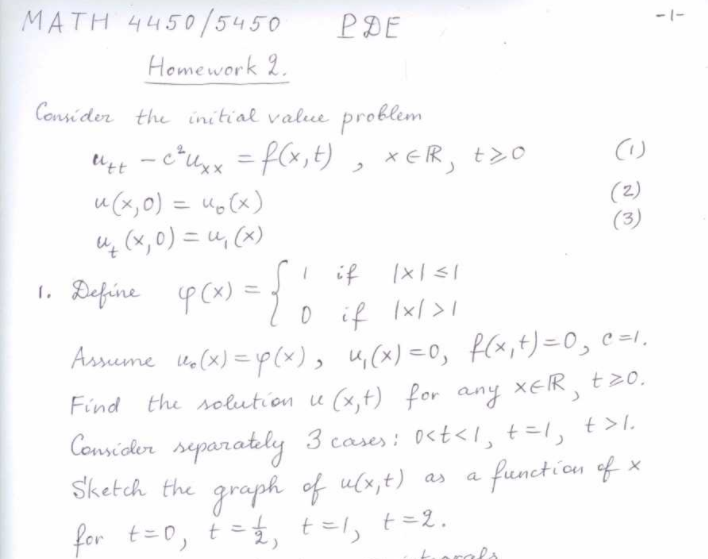 MATH 4450/5450 PDE -1-
Homework 2.
Consider the initial value problem
u_tt - c²u_xx = f(x,t) , x∈ℝ, t≥0 (1)
u(x,0) = u₀(x) (2)
u_t (x,0) = u₁(x) (3)
1. Define φ(x) = { 1 if |x| ≤ 1
0 if |x| > 1
Assume u₀(x) = φ(x), u₁(x) = 0, f(x,t) = 0, c = 1.
Find the solution u (x,t) for any x∈ℝ, t≥0.
Consider separately 3 cases: 0<t<1, t=1, t>1.
Sketch the graph of u(x,t) as a function of x
for t=0, t=½, t=1, t=2.